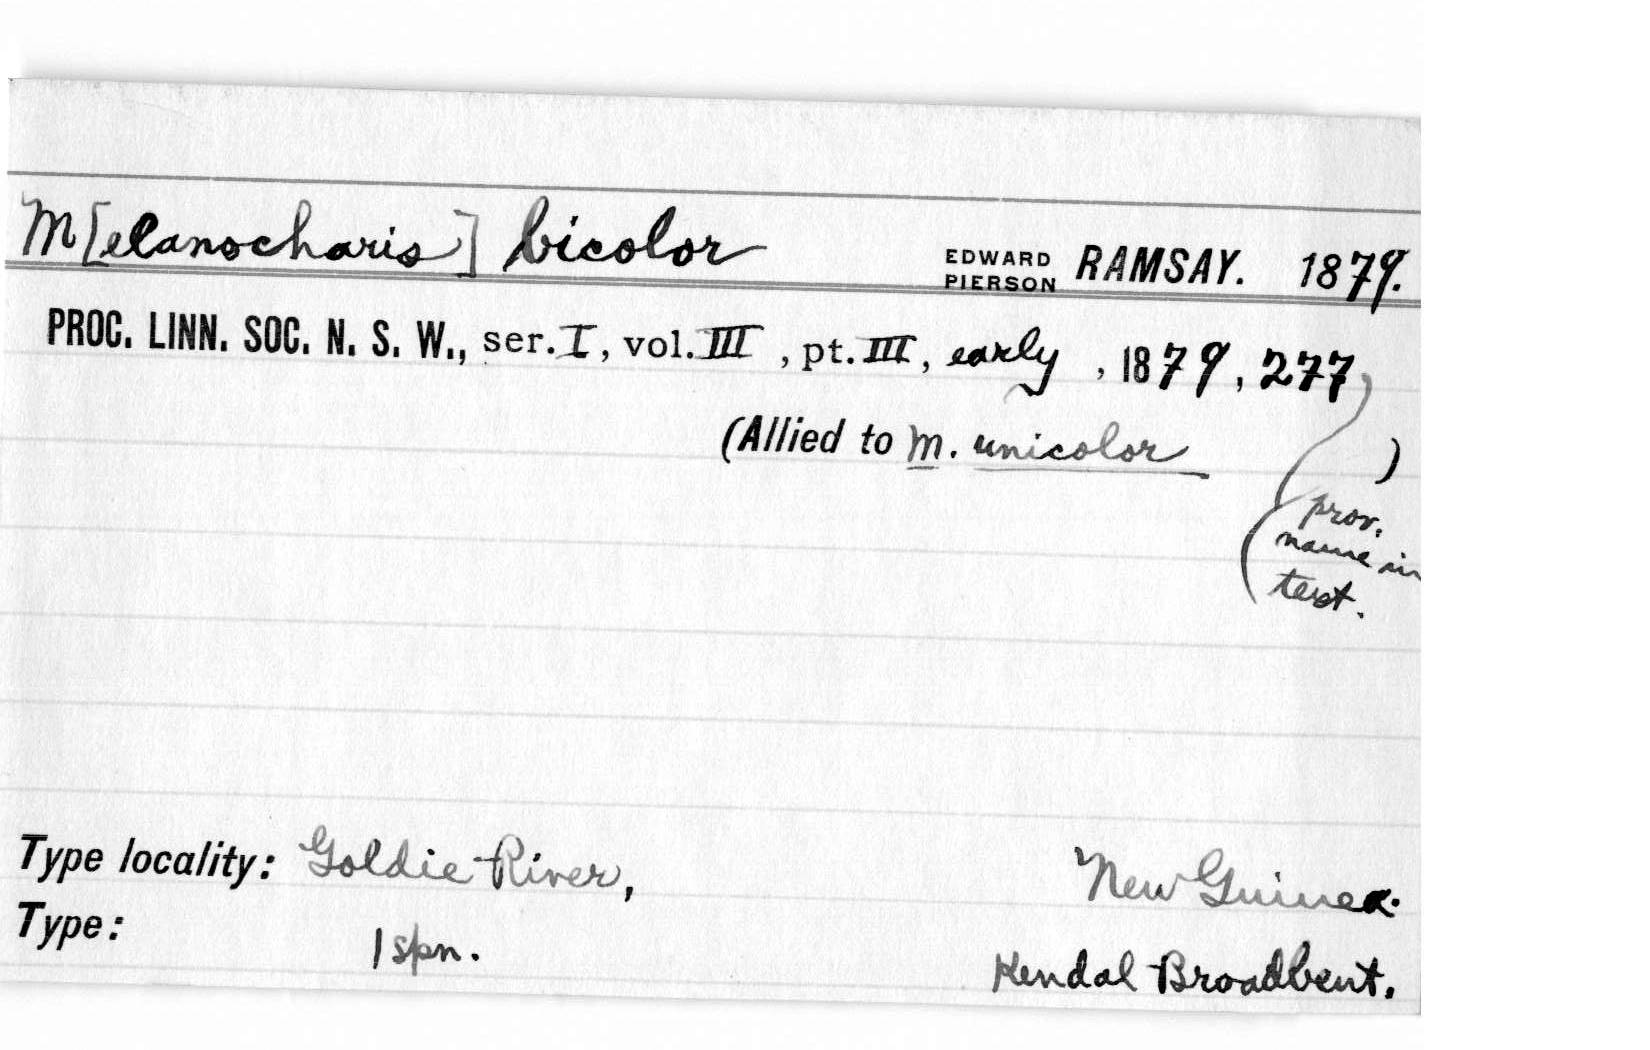 M[elanocharis] bicolor EDWARD PIERSON RAMSAY. 1879.
PROC. LINN. SOC. N. S. W., ser. I, vol. III, pt. III, early, 1879, 277
(Allied to M. unicolor )
(prov.
name in
text.
Type locality: Goldie River, New Guinea.
Type: 1 spn. Kendal Broadbent.